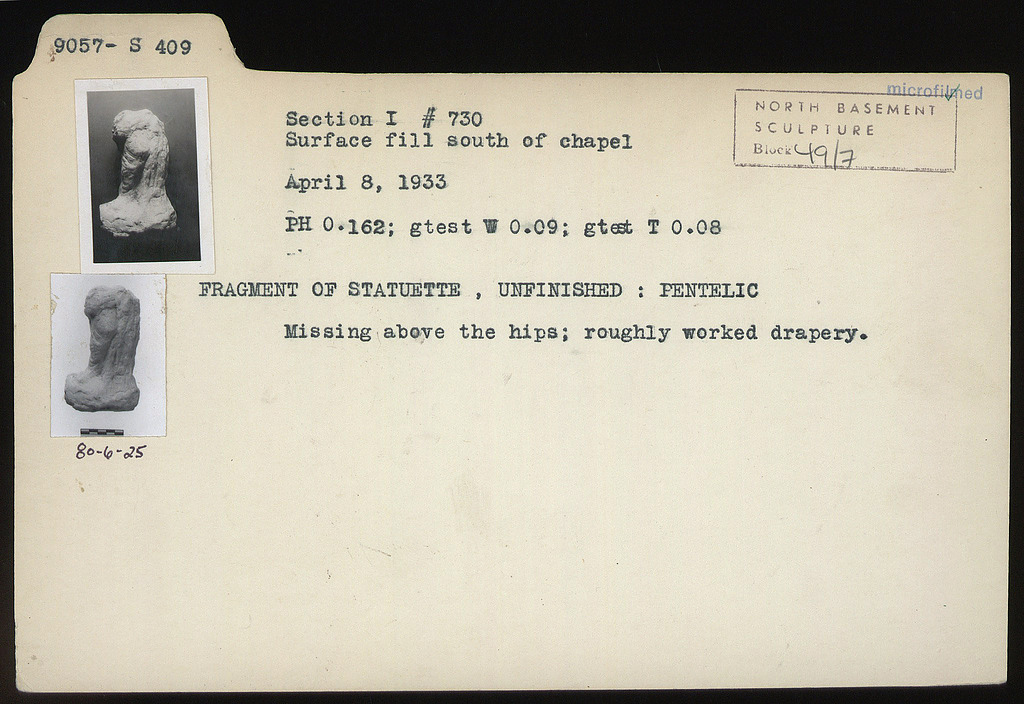 9057- S 409
microfilmed
NORTH BASEMENT
SCULPTURE
Block 49/7
Section I # 730
Surface fill south of chapel
April 8, 1933
PH 0.162; gtest W 0.09; gtest T 0.08
FRAGMENT OF STATUETTE , UNFINISHED : PENTELIC
Missing above the hips; roughly worked drapery.
80-6-25